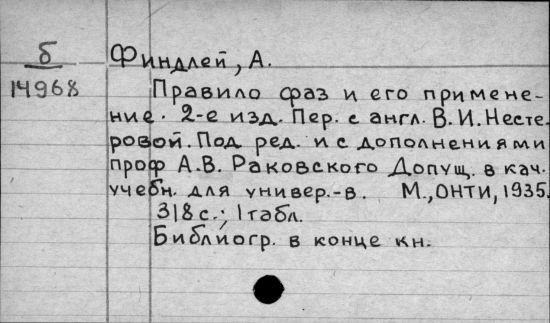 б
14968
Финдлей, А.
Правило фаз и его примене-
ние. 2-е изд. Пер. с англ. В. И. Несте-
ровой. Под ред. и с дополнениями
проф А. В. Раковского Допущ. в кач.
учебн. для универ.-в. М., ОНТИ, 1935.
318 с.; 1 табл.
Библиогр. в конце кн.